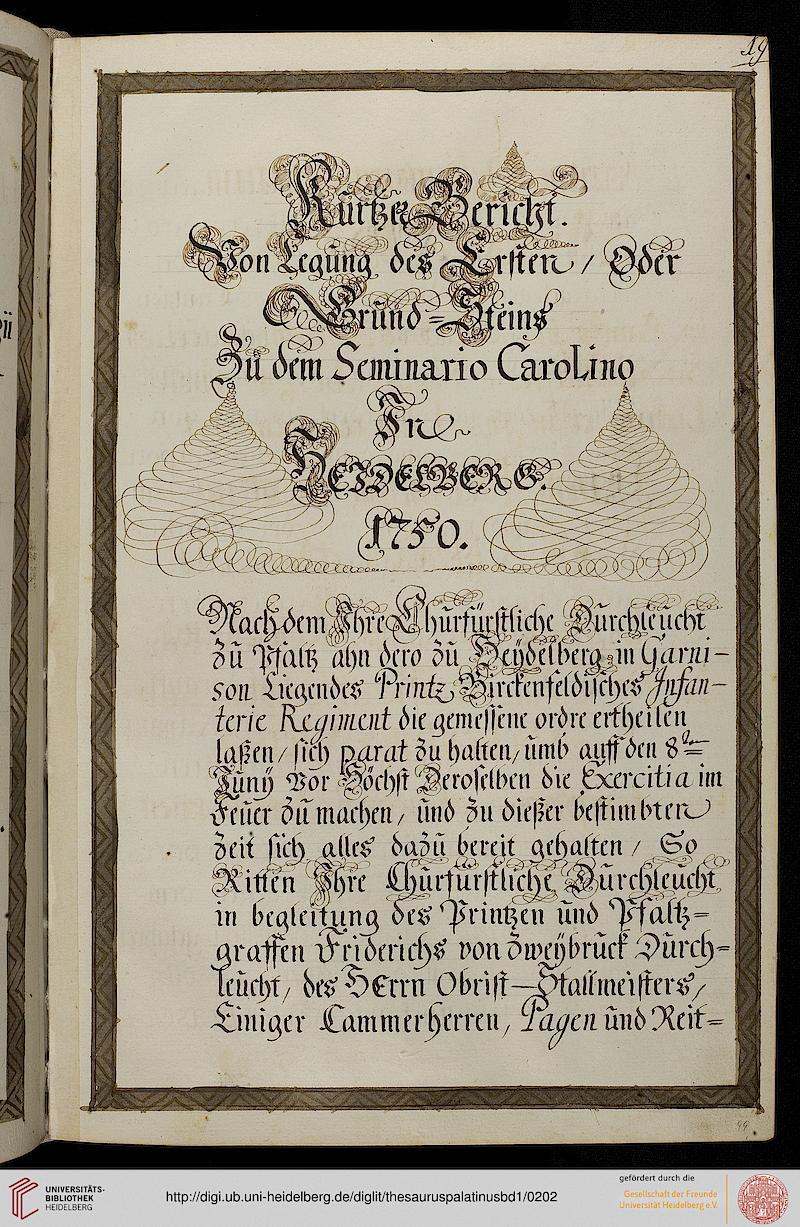 19
Kurtzer Bericht.
Von Legung des Ersten / Oder
Grund=Steins
Zu dem Seminario Carolino
In
HEIDELBERG.
1750.
Nach dem Ihre Churfürstliche Durchleucht
zu Pfaltz ahn dero zu Heydelberg in Garni-
son Liegendes Printz Birckenfeldisches Infan-
terie Regiment die gemessene ordre ertheilen
laßen / sich parat zu halten / umb auff den 8ten
Juny vor Höchst Deroselben die Exercitia im
Feuer zu machen / und zu dießer bestimbten
Zeit sich alles dazu bereit gehalten / So
Ritten Ihre Churfürstliche Durchleucht
in begleitung des Printzen und Pfaltz=
graffen Friderichs von Zweybruck Durch=
leucht / des HErrn Obrist-Stallmeisters /
Einiger Cammerherren, Pagen und Reit=
99
UNIVERSITÄTS-
BIBLIOTHEK
HEIDELBERG
http://digi.ub.uni-heidelberg.de/diglit/thesauruspalatinusbd1/0202
gefördert durch die
Gesellschaft der Freunde
Universität Heidelberg e.V.